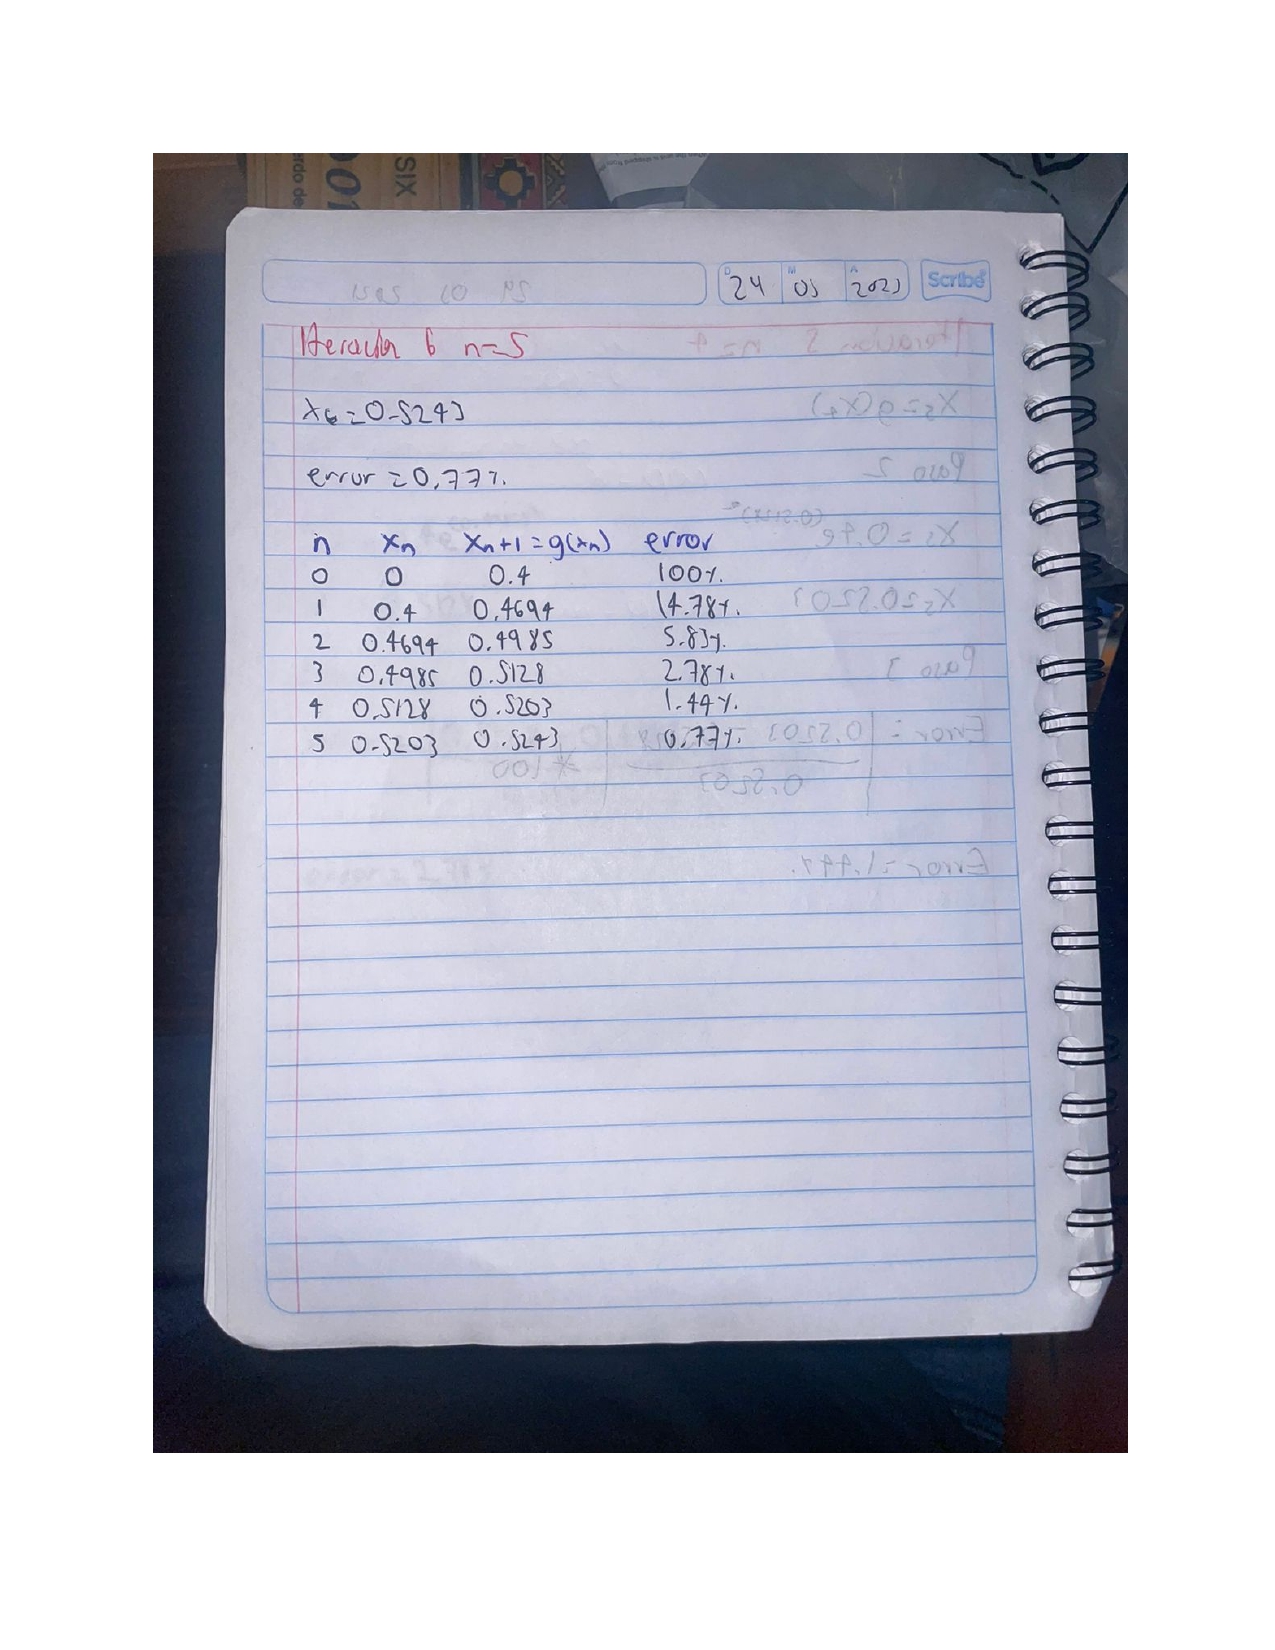 SIX
D M A
24 03 2023 Scribe
Iteración 6 n=5
x6=0.5243
error=0.77%
n xn xn+1=g(xn) error
0 0 0.4 100%
1 0.4 0.4694 14.78%
2 0.4694 0.4985 5.83%
3 0.4985 0.5128 2.78%
4 0.5128 0.5203 1.44%
5 0.5203 0.5243 0.77%